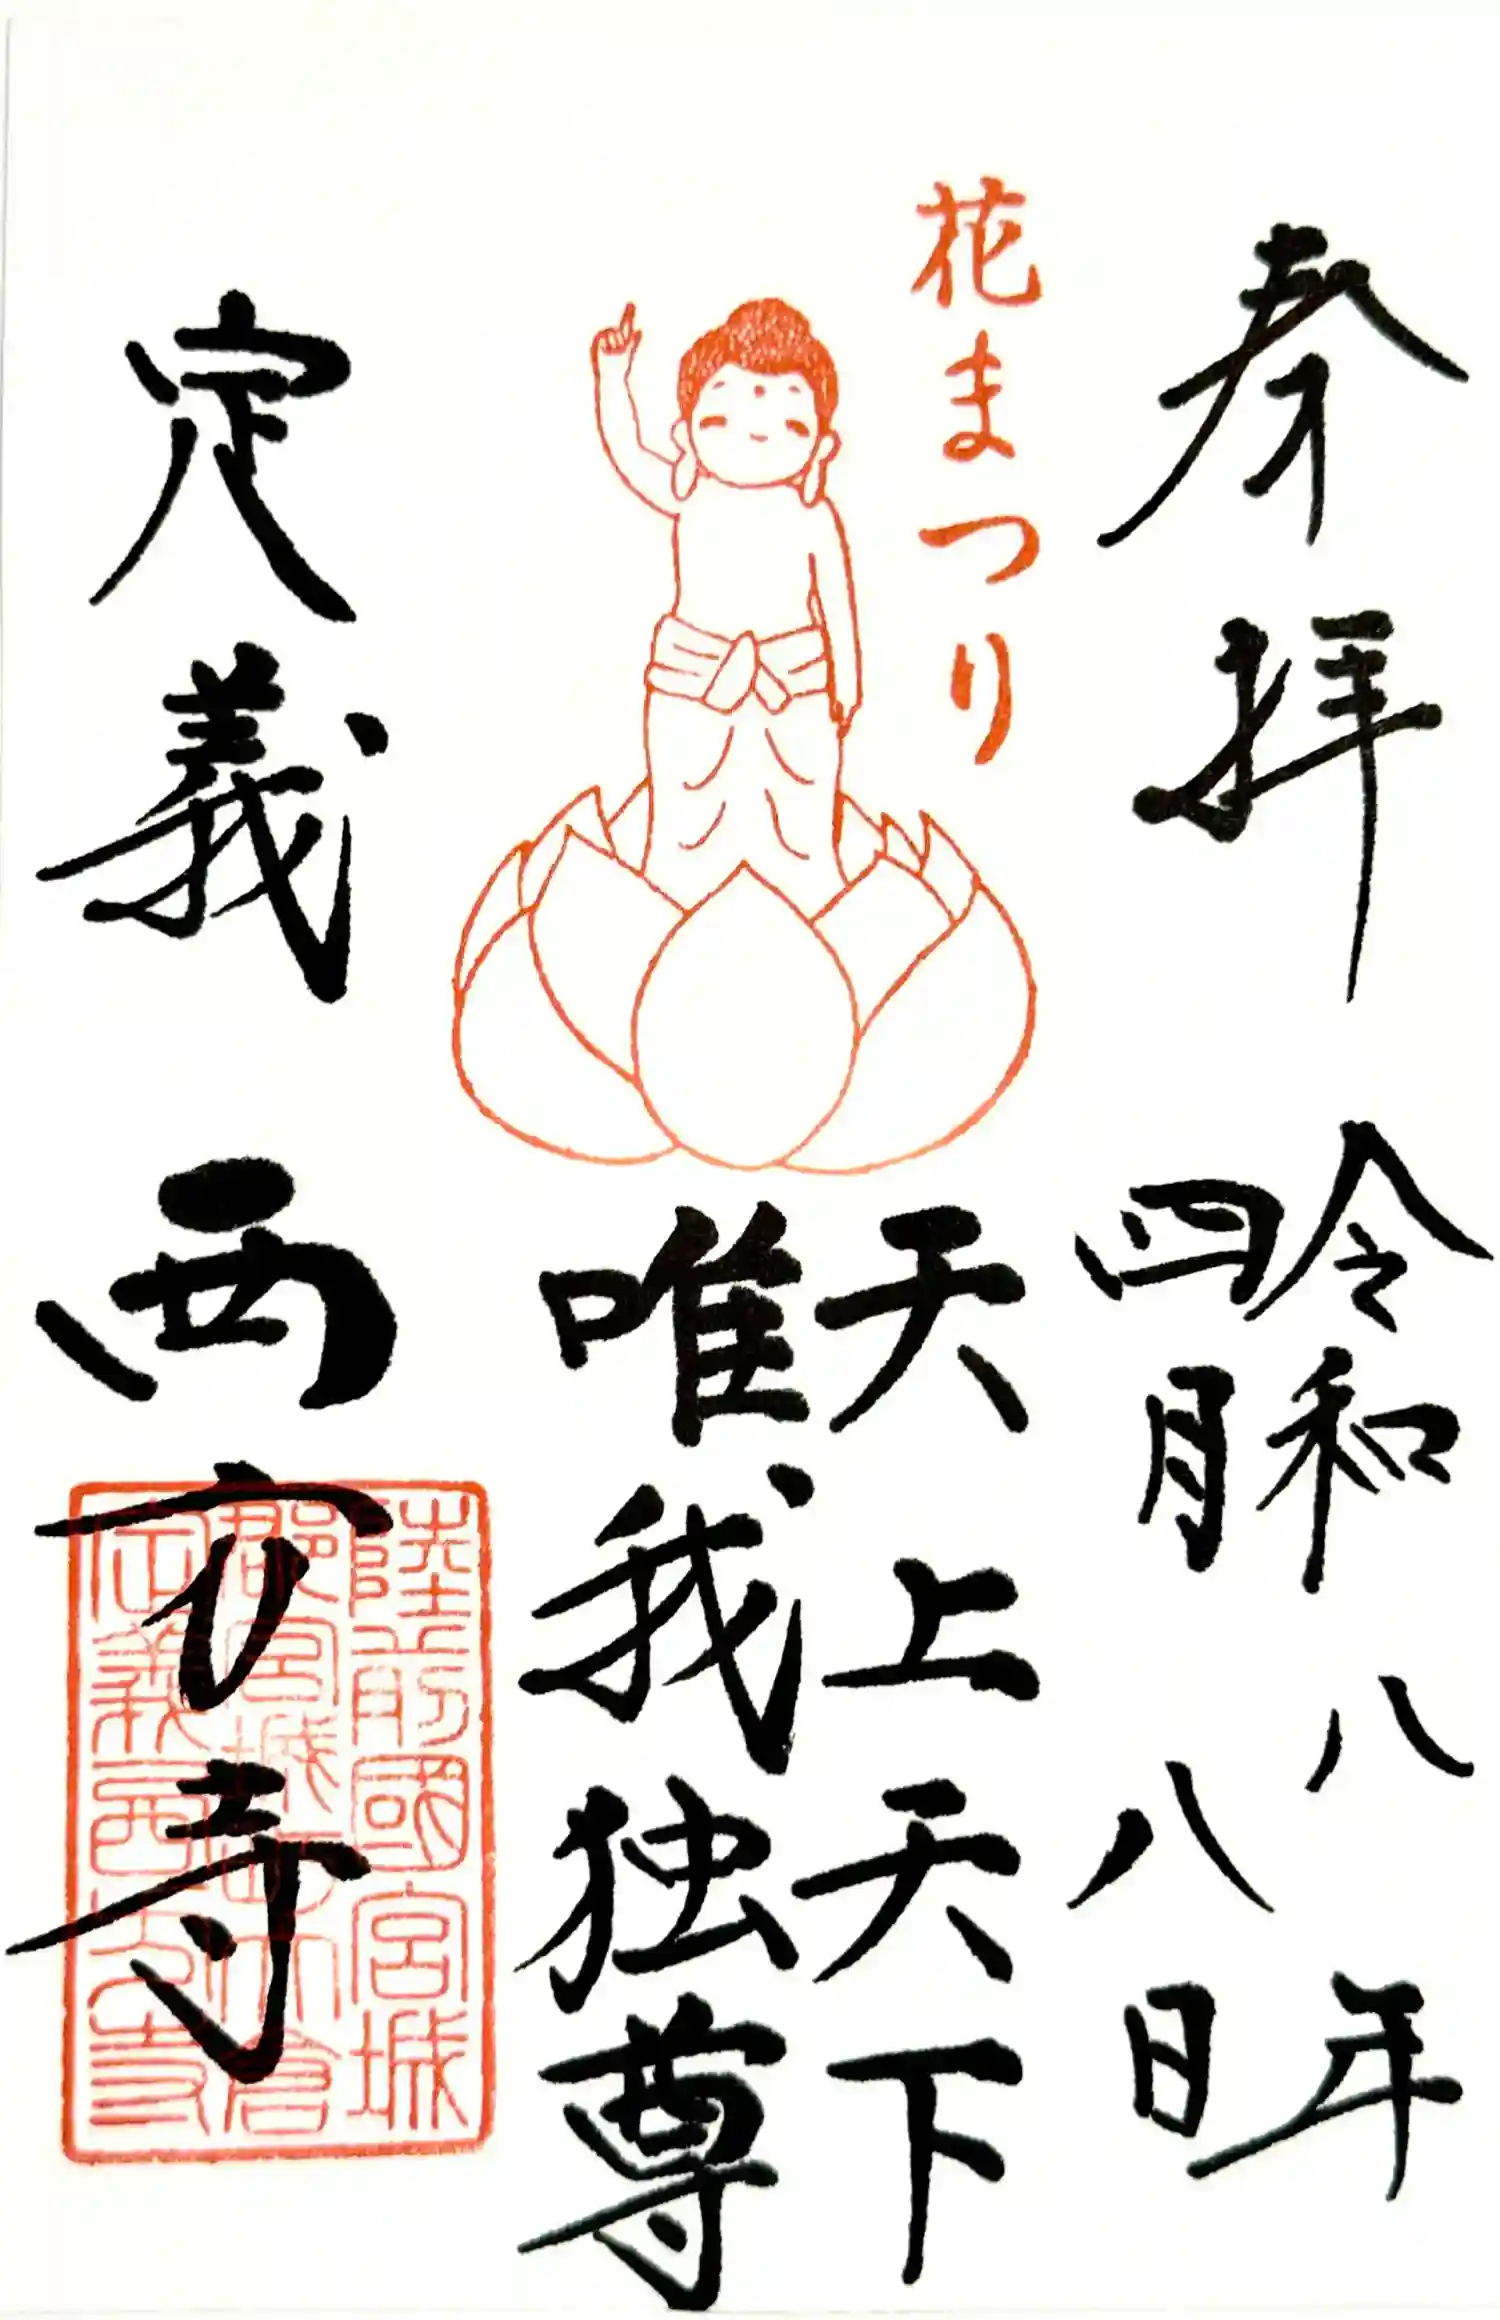 奉拝
令和八年
四月八日
花まつり
天上天下
唯我独尊
定義 西方寺
陸前國宮城
郡宮城村大倉
定義西方寺